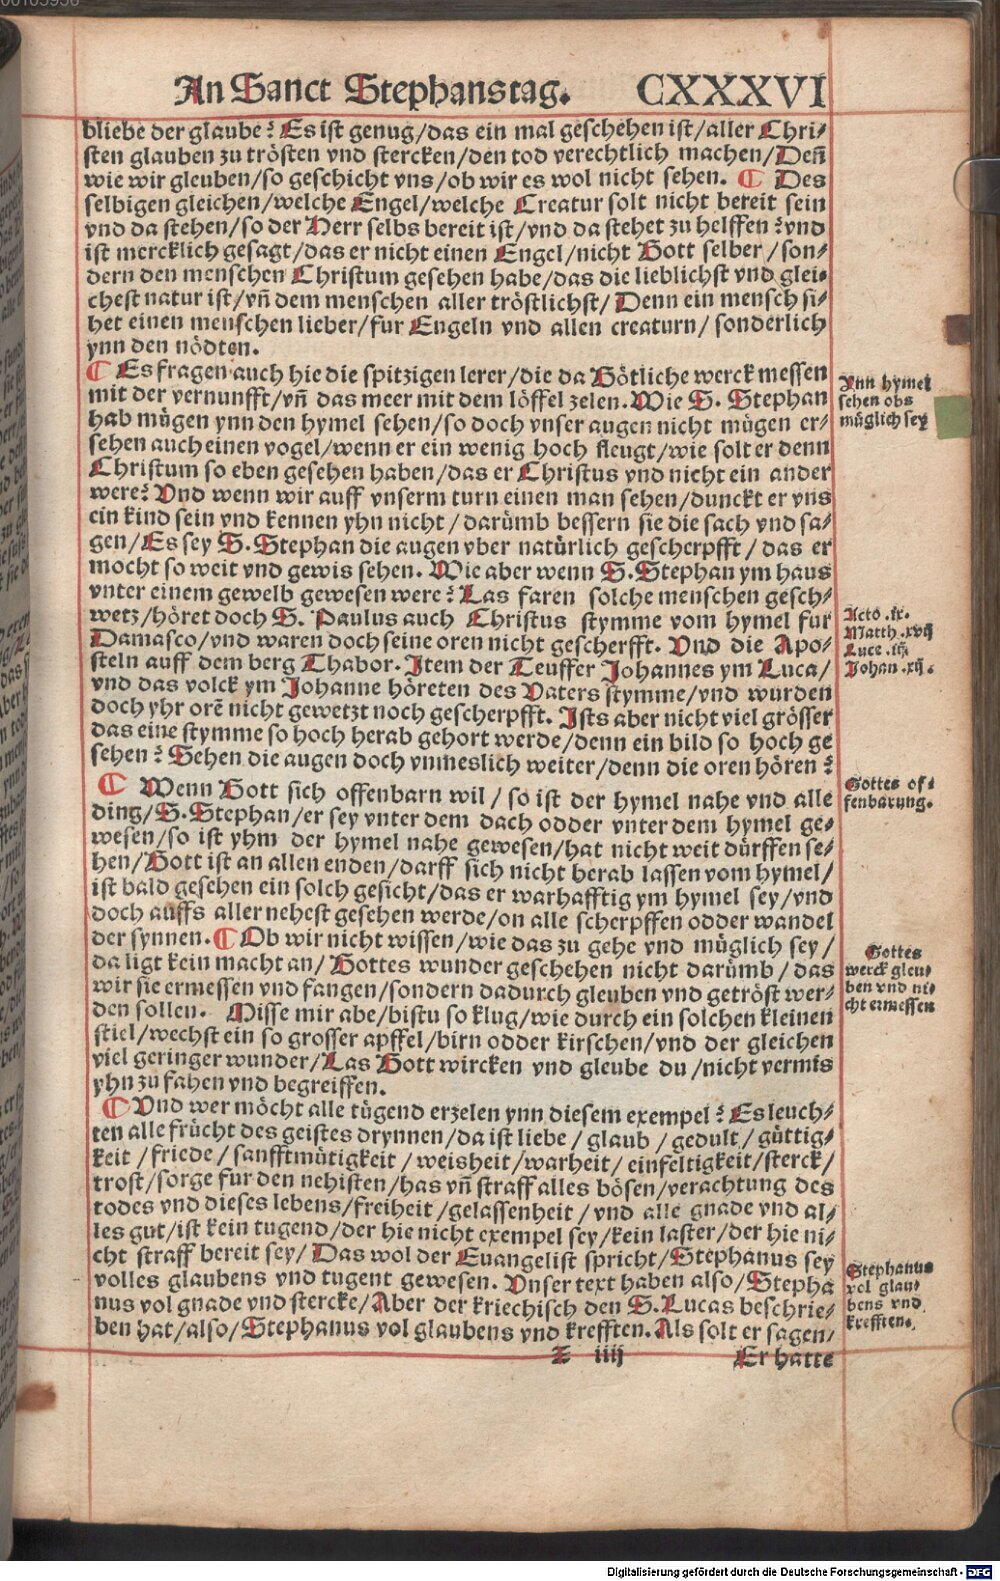 An Sanct Stephanstag. CXXXVI
bliebe der glaube? Es ist genug/das ein mal geschehen ist/aller Chri-
sten glauben zu trösten vnd stercken/den tod verechtlich machen/Deñ
wie wir gleuben/so geschicht vns/ob wir es wol nicht sehen. ¶ Des
selbigen gleichen/welche Engel/welche Creatur solt nicht bereit sein
vnd da stehen/so der Herr selbs bereit ist/vnd da stehet zu helffen? vnd
ist mercklich gesagt/das er nicht einen Engel/nicht Gott selber/son-
dern den menschen Christum gesehen habe/das die lieblichst vnd glei-
chest natur ist/vñ dem menschen aller tröstlichst/Denn ein mensch si-
het einen menschen lieber/fur Engeln vnd allen creaturn/sonderlich
ynn den nödten.
¶ Es fragen auch hie die spitzigen lerer/die da Götliche werck messen
mit der vernunfft/vñ das meer mit dem löffel zelen. Wie S. Stephan
hab mügen ynn den hymel sehen/so doch vnser augen nicht mügen er-
sehen auch einen vogel/wenn er ein wenig hoch fleugt/wie solt er denn
Christum so eben gesehen haben/das er Christus vnd nicht ein ander
were? Vnd wenn wir auff vnserm turn einen man sehen/dunckt er vns
ein kind sein vnd kennen yhn nicht/darümb bessern sie die sach vnd sa-
gen/Es sey S. Stephan die augen vber natürlich gescherpfft/das er
mocht so weit vnd gewis sehen. Wie aber wenn S. Stephan ym haus
vnter einem gewelb gewesen were? Las faren solche menschen gesch-
wetz/höret doch S. Paulus auch Christus stymme vom hymel fur
Damasco/vnd waren doch seine oren nicht gescherfft. Vnd die Apo-
steln auff dem berg Thabor. Item der Teuffer Johannes ym Luca/
vnd das volck ym Johanne höreten des Vaters stymme/vnd wurden
doch yhr orē nicht gewetzt noch gescherpfft. Ists aber nicht viel grösser
das eine stymme so hoch herab gehort werde/denn ein bild so hoch ge
sehen? Sehen die augen doch vnmeslich weiter/denn die oren hören?
¶ Wenn Gott sich offenbarn wil/so ist der hymel nahe vnd alle
ding/S. Stephan/er sey vnter dem dach odder vnter dem hymel ge-
wesen/so ist yhm der hymel nahe gewesen/hat nicht weit dürffen se-
hen/Gott ist an allen enden/darff sich nicht herab lassen vom hymel/
ist bald gesehen ein solch gesicht/das er warhafftig ym hymel sey/vnd
doch auffs aller nehest gesehen werde/on alle scherpffen odder wandel
der synnen. ¶ Ob wir nicht wissen/wie das zu gehe vnd müglich sey/
da ligt kein macht an/Gottes wunder geschehen nicht darümb/das
wir sie ermessen vnd fangen/sondern dadurch gleuben vnd getröst wer-
den sollen. Misse mir abe/bistu so klug/wie durch ein solchen kleinen
stiel/wechst ein so grosser apffel/birn odder kirschen/vnd der gleichen
viel geringer wunder/Las Gott wircken vnd gleube du/nicht vermis
yhn zu fahen vnd begreiffen.
¶ Vnd wer möcht alle tügend erzelen ynn diesem exempel? Es leuch-
ten alle frücht des geistes drynnen/da ist liebe/glaub/gedult/güttig-
keit/friede/sanfftmütigkeit/weisheit/warheit/einfeltigkeit/sterck/
trost/sorge fur den nehisten/has vñ straff alles bösen/verachtung des
todes vnd dieses lebens/freiheit/gelassenheit/vnd alle gnade vnd al-
les gut/ist kein tugend/der hie nicht exempel sey/kein laster/der hie ni-
cht straff bereit sey/Das wol der Euangelist spricht/Stephanus sey
volles glaubens vnd tugent gewesen. Vnser text haben also/Stepha
nus vol gnade vnd stercke/Aber der kriechisch den S. Lucas beschrie-
ben hat/also/Stephanus vol glaubens vnd krefften. Als solt er sagen/
iiij Er hatte
Ynn hymel
sehen obs
müglich sey
Acto .ix.
Matth .xvij
Luce .iij
Johan .xij.
Gottes of-
fenbarung.
Gottes
werck gleu-
ben vnd ni-
cht ermessen
Stephanus
vol glau-
bens vnd
krefften.
Digitalisierung gefördert durch die Deutsche Forschungsgemeinschaft - DFG